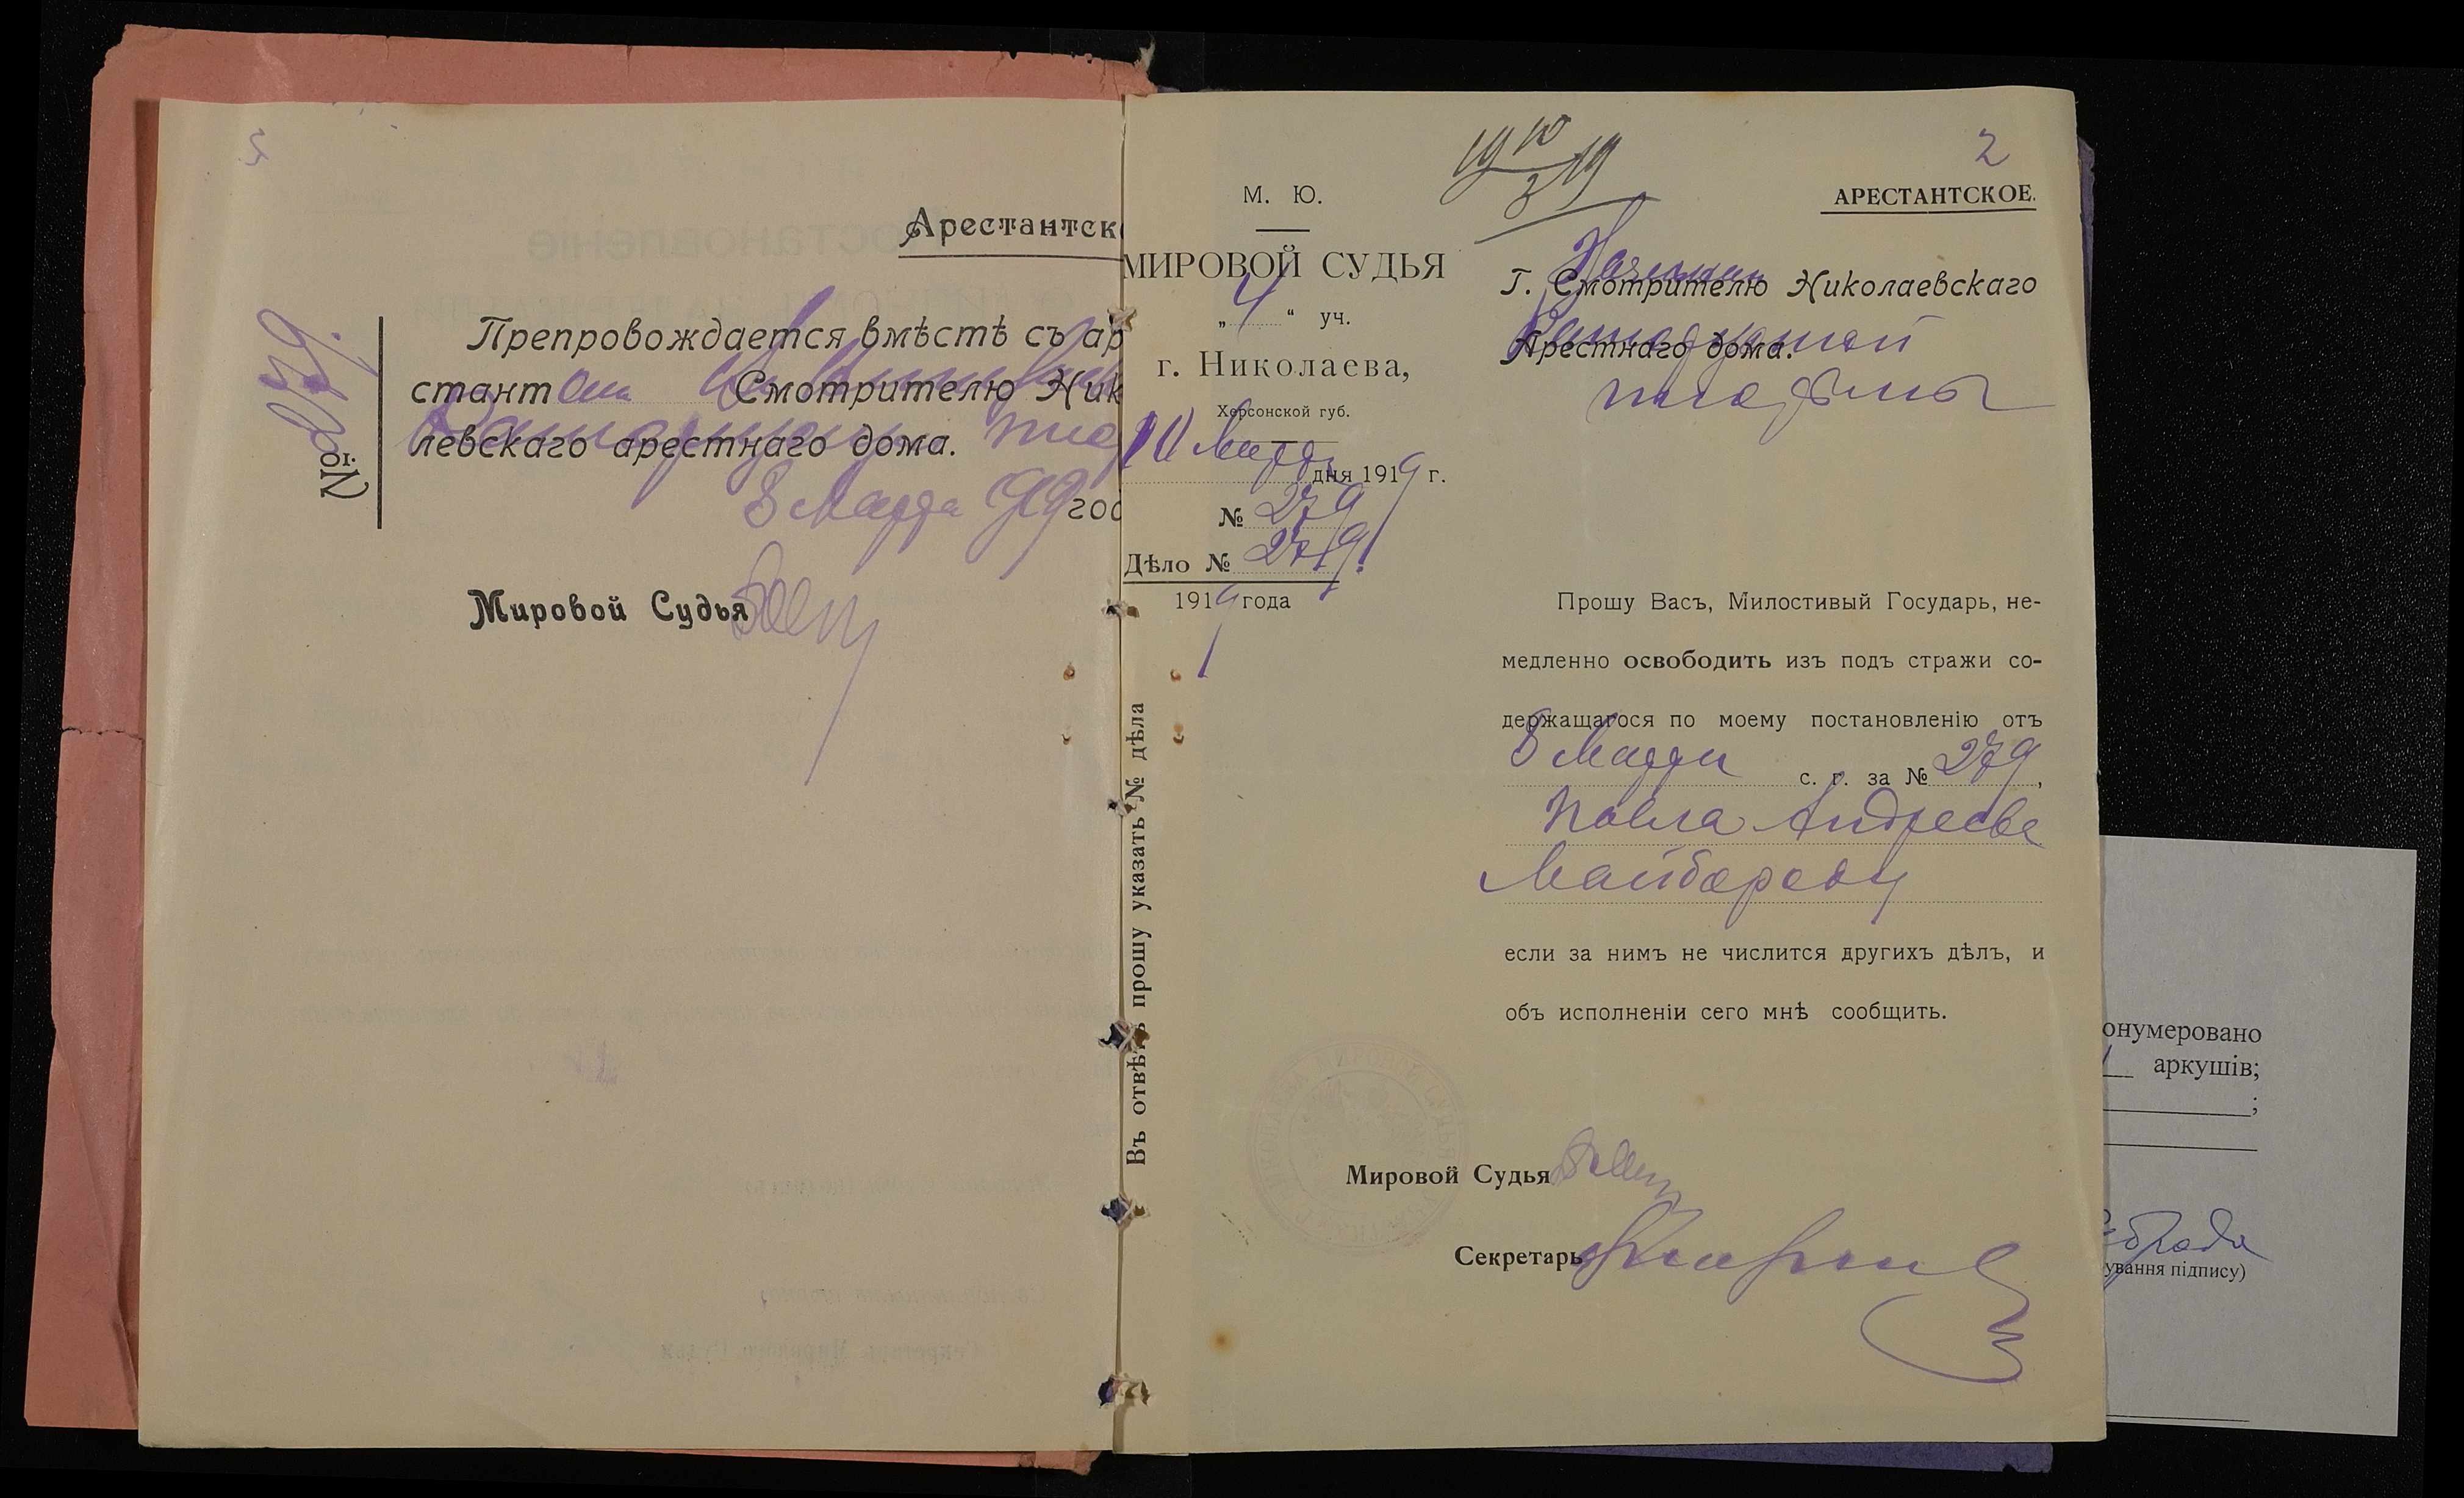 Арестантск
Препровождается вмѣстѣ съ ар
стантомъ Смотрителю Ник
левскаго арестнаго дома.
8 Марта 1919 год
№
Мировой Судья
2
М. Ю.
МИРОВОЙ СУДЬЯ
„4“ уч.
г. Николаева,
Херсонской губ.
10 Марта дня 1919 г.
№ 279
Дѣло № 279
1919 года
Въ отвѣтѣ прошу указать № дѣла
19 10/3 19
АРЕСТАНТСКОЕ.
Г. Смотрителю Николаевскаго
Арестнаго дома.
Прошу Васъ, Милостивый Государь, не-
медленно освободить изъ подъ стражи со-
держащагося по моему постановленію отъ
8 Марта с. г. за № 279,
Павла Андреева
Майбороду
если за нимъ не числится другихъ дѣлъ, и
объ исполненіи сего мнѣ сообщить.
Мировой Судья
Секретарь
онумеровано
аркушів;
;
ування підпису)